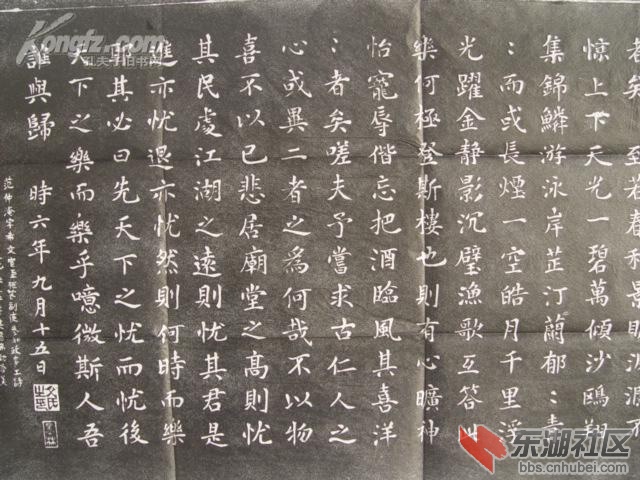 者矣 至若春和景明波瀾不
惊上下天光一碧萬傾沙鷗翔
集錦鱗游泳岸芷汀蘭郁：青
：而或長煙一空皓月千里浮
光躍金静影沉璧漁歌互答此
樂何極登斯樓也則有心曠神
怡寵辱偕忘把酒臨風其喜洋
：者矣嗟夫予嘗求古仁人之
心或異二者之為何哉不以物
喜不以己悲居廟堂之高則忧
其民處江湖之遠則忧其君是
進亦忧退亦忧然則何時而樂
耶其必曰先天下之忧而忧後
天下之樂而樂乎噫微斯人吾
誰與歸 時六年九月十五日
范仲淹字希文官至樞密副使参知政事工詩
Kongfz.com
孔夫子旧书网
东湖社区
bbs.cnhubei.com